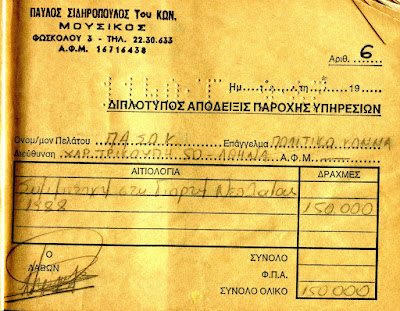 ΠΑΥΛΟΣ ΣΙΔΗΡΟΠΟΥΛΟΣ Του ΚΩΝ.
ΜΟΥΣΙΚΟΣ
ΦΩΣΚΟΛΟΥ 3 - ΤΗΛ. 22.30.633
Α.Φ.Μ. 16716438
Αριθ. 6
Ημ. της 19
ΔΙΠΛΟΤΥΠΟΣ ΑΠΟΔΕΙΞΙΣ ΠΑΡΟΧΗΣ ΥΠΗΡΕΣΙΩΝ
Ονομ/μον Πελάτου ΠΑ.ΣΟ.Κ Επάγγελμα ΠΟΛΙΤΙΚΟ ΚΟΜΜΑ
Διεύθυνση ΧΑΡ. ΤΡΙΚΟΥΠΗ 50 - ΑΘΗΝΑ Α.Φ.Μ.
ΑΙΤΙΟΛΟΓΙΑ ΔΡΑΧΜΕΣ
Συμμετοχή στη Γιορτή Νεολαίας
1988 150.000
Ο ΣΥΝΟΛΟ
ΛΑΒΩΝ Φ.Π.Α.
ΣΥΝΟΛΟ ΟΛΙΚΟ 150.000